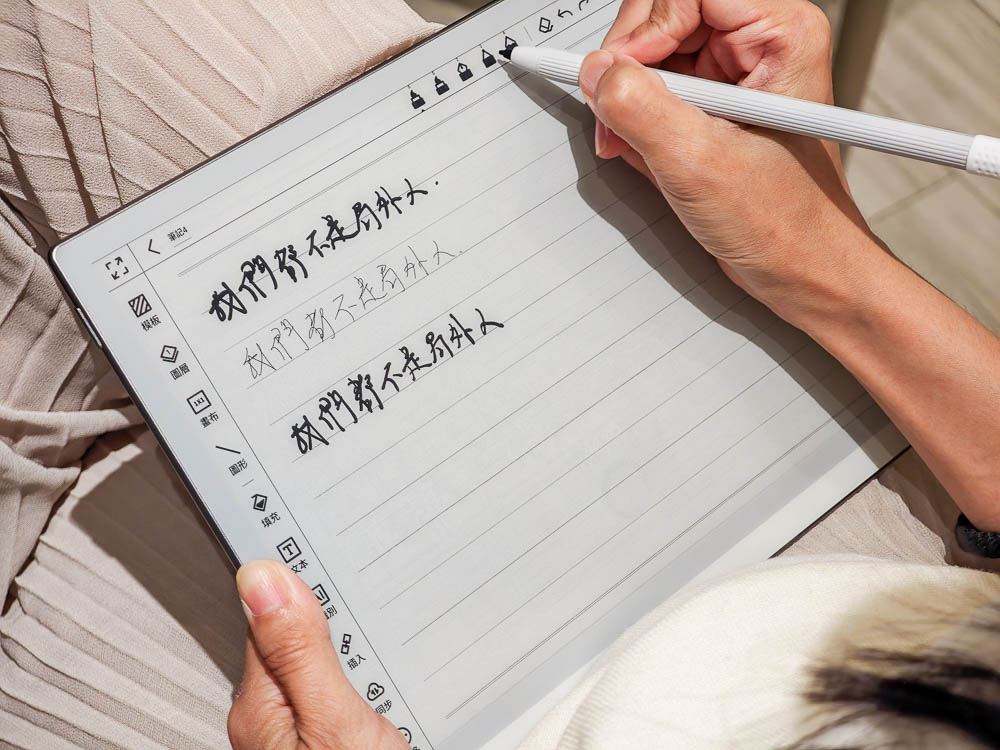 筆記4
我們都不是局外人.
我們都不是局外人.
我們都不是局外人
模板
圖層
畫布
圖形
填充
文本
插入
同步